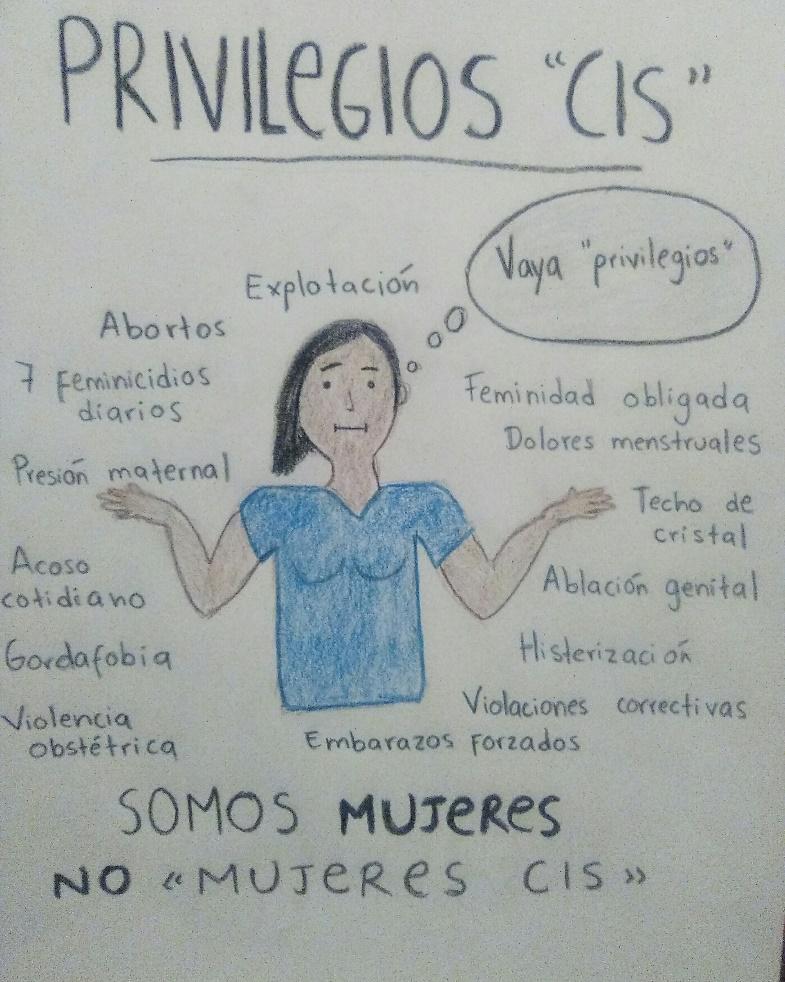 PRIVILEGIOS "CIS"
Vaya "privilegios"
Explotación
Abortos
7 Feminicidios
diarios
Presión maternal
Acoso
cotidiano
Gordafobia
Violencia
obstétrica
Feminidad obligada
Dolores menstruales
Techo de
cristal
Ablación genital
Histerización
Violaciones correctivas
Embarazos forzados
SOMOS MUJERES
NO «MUJERES CIS»